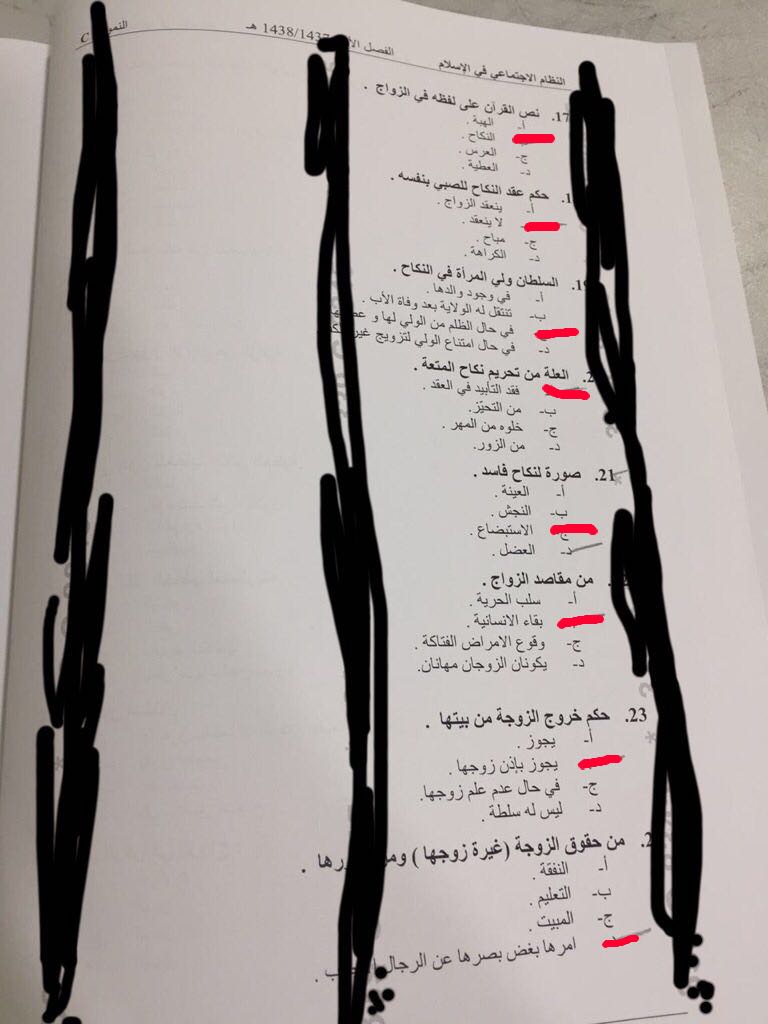 النظام الاجتماعي في الإسلام
الفصل 1438/1437 هـ
C
17. نص القرآن على لفظه في الزواج .
أ- الهبة .
النكاح .
ج- العرس .
د- العطية .
حكم عقد النكاح للصبي بنفسه .
أ- ينعقد الزواج .
لا ينعقد .
ج- مباح .
د- الكراهة .
السلطان ولي المرأة في النكاح .
أ- في وجود والدها .
ب- تنتقل له الولاية بعد وفاة الأب .
في حال الظلم من الولي لها و
د- في حال امتناع الولي لتزويج
العلة من تحريم نكاح المتعة .
فقد التأبيد في العقد .
ب- من التحيّز.
ج- خلوه من المهر .
د- من الزور.
21. صورة لنكاح فاسد .
أ- العينة .
ب- النجش .
ج- الاستبضاع .
د- العضل .
من مقاصد الزواج .
أ- سلب الحرية .
بقاء الانسانية .
ج- وقوع الامراض الفتاكة .
د- يكونان الزوجان مهانان.
23. حكم خروج الزوجة من بيتها .
أ- يجوز .
يجوز بإذن زوجها .
ج- في حال عدم علم زوجها.
د- ليس له سلطة .
من حقوق الزوجة (غيرة زوجها )
أ- النفقة .
ب- التعليم .
ج- المبيت .
امرها بغض بصرها عن الرجال